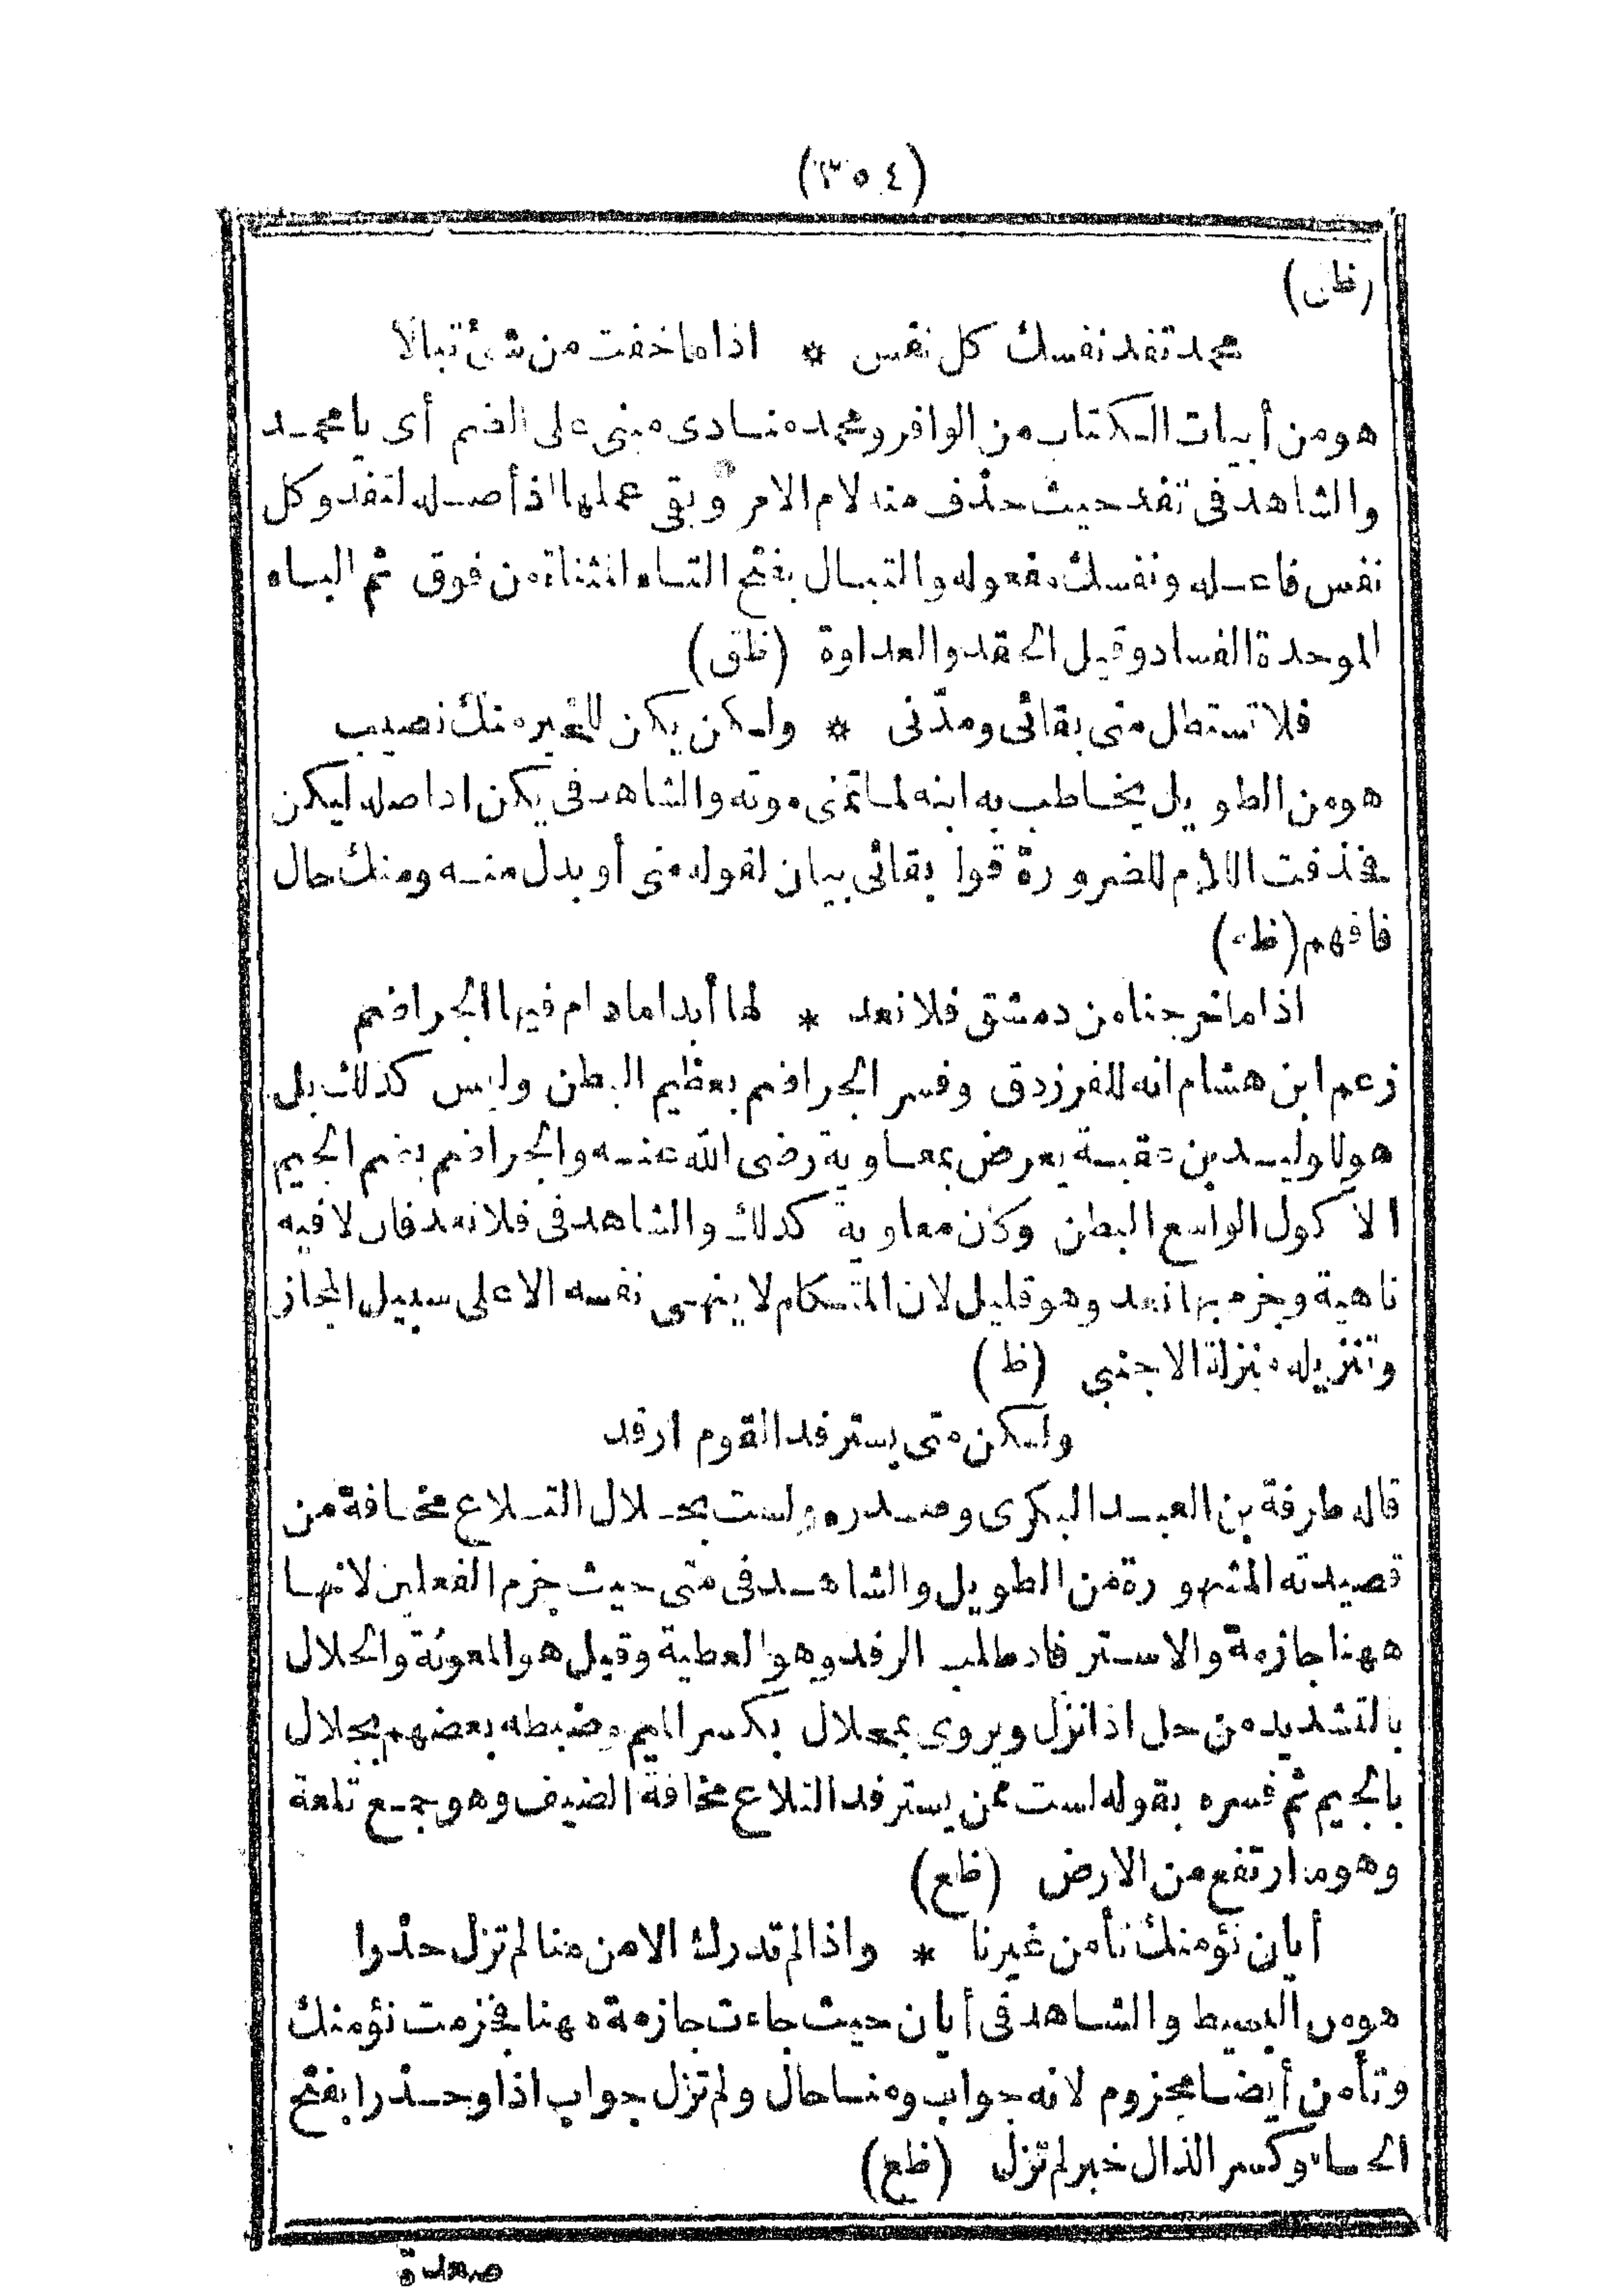 (٣٥٤)
(ظن)
محمد تفد نفسك كل نفس * اذا ما خفت من شئ تبالا
هو من أبيات الكتاب من الوافر ومحمد منادى مبنى على الضم أى يا محمد
والشاهد فى تفد حيث حذف منه لام الامر وبقى عملها اذ أصله لتفد وكل
نفس فاعله ونفسك مفعوله والتبال بفتح التاء المثناة من فوق ثم الباء
الموحدة الفساد وقيل الحقد والعداوة (ظق)
فلا تستطل منى بقائى ومدّتى * ولكن يكن للخير منك نصيب
هو من الطويل يخاطب به ابنه لما تمنى موته والشاهد فى يكن اذ اصله ليكن
فحذفت اللام للضرورة قوله بقائى بيان لقوله منى أو بدل منه ومنك حال
فافهم (ظه)
اذا ما خرجنا من دمشق فلا نعد * لها أبدا ما دام فيها الجراضم
زعم ابن هشام انه للفرزدق وفسر الجراضم بعظيم البطن وليس كذلك بل
هو للوليد بن عقبة يعرض بمعاوية رضى الله عنه والجراضم بضم الجيم
الاكول الواسع البطن وكان معاوية كذلك والشاهد فى فلا نعد فان لا فيه
ناهية وجزم بها نعد وهو قليل لان المتكلم لا ينهى نفسه الا على سبيل المجاز
وتنزيله منزلة الاجنبى (ظ)
ولكن متى يسترفد القوم ارفد
قاله طرفة بن العبد البكرى وصدره ولست بحلال التلاع مخافة من
قصيدته المشهورة من الطويل والشاهد فى متى حيث جزم الفعلين لانها
ههنا جازمة والاسترفاد طلب الرفد وهو العطية وقيل هو المعونة والحلال
بالتشديد من حل اذا نزل ويروى بمحلال بكسر الميم وضبطه بعضهم بجلال
بالجيم ثم فسره بقوله لست ممن يسترفد التلاع مخافة الضيف وهو جمع تلعة
وهو ما ارتفع من الارض (ظع)
أيان نؤمنك تأمن غيرنا * واذا لم تدرك الامن منا لم تزل حذرا
هو من البسيط والشاهد فى أيان حيث جاءت جازمة ههنا فجزمت نؤمنك
وتأمن أيضا مجزوم لانه جواب ومنا حال ولم تزل جواب اذا وحذرا بفتح
الحاء وكسر الذال خبر لم تزل (ظع)
صعدة